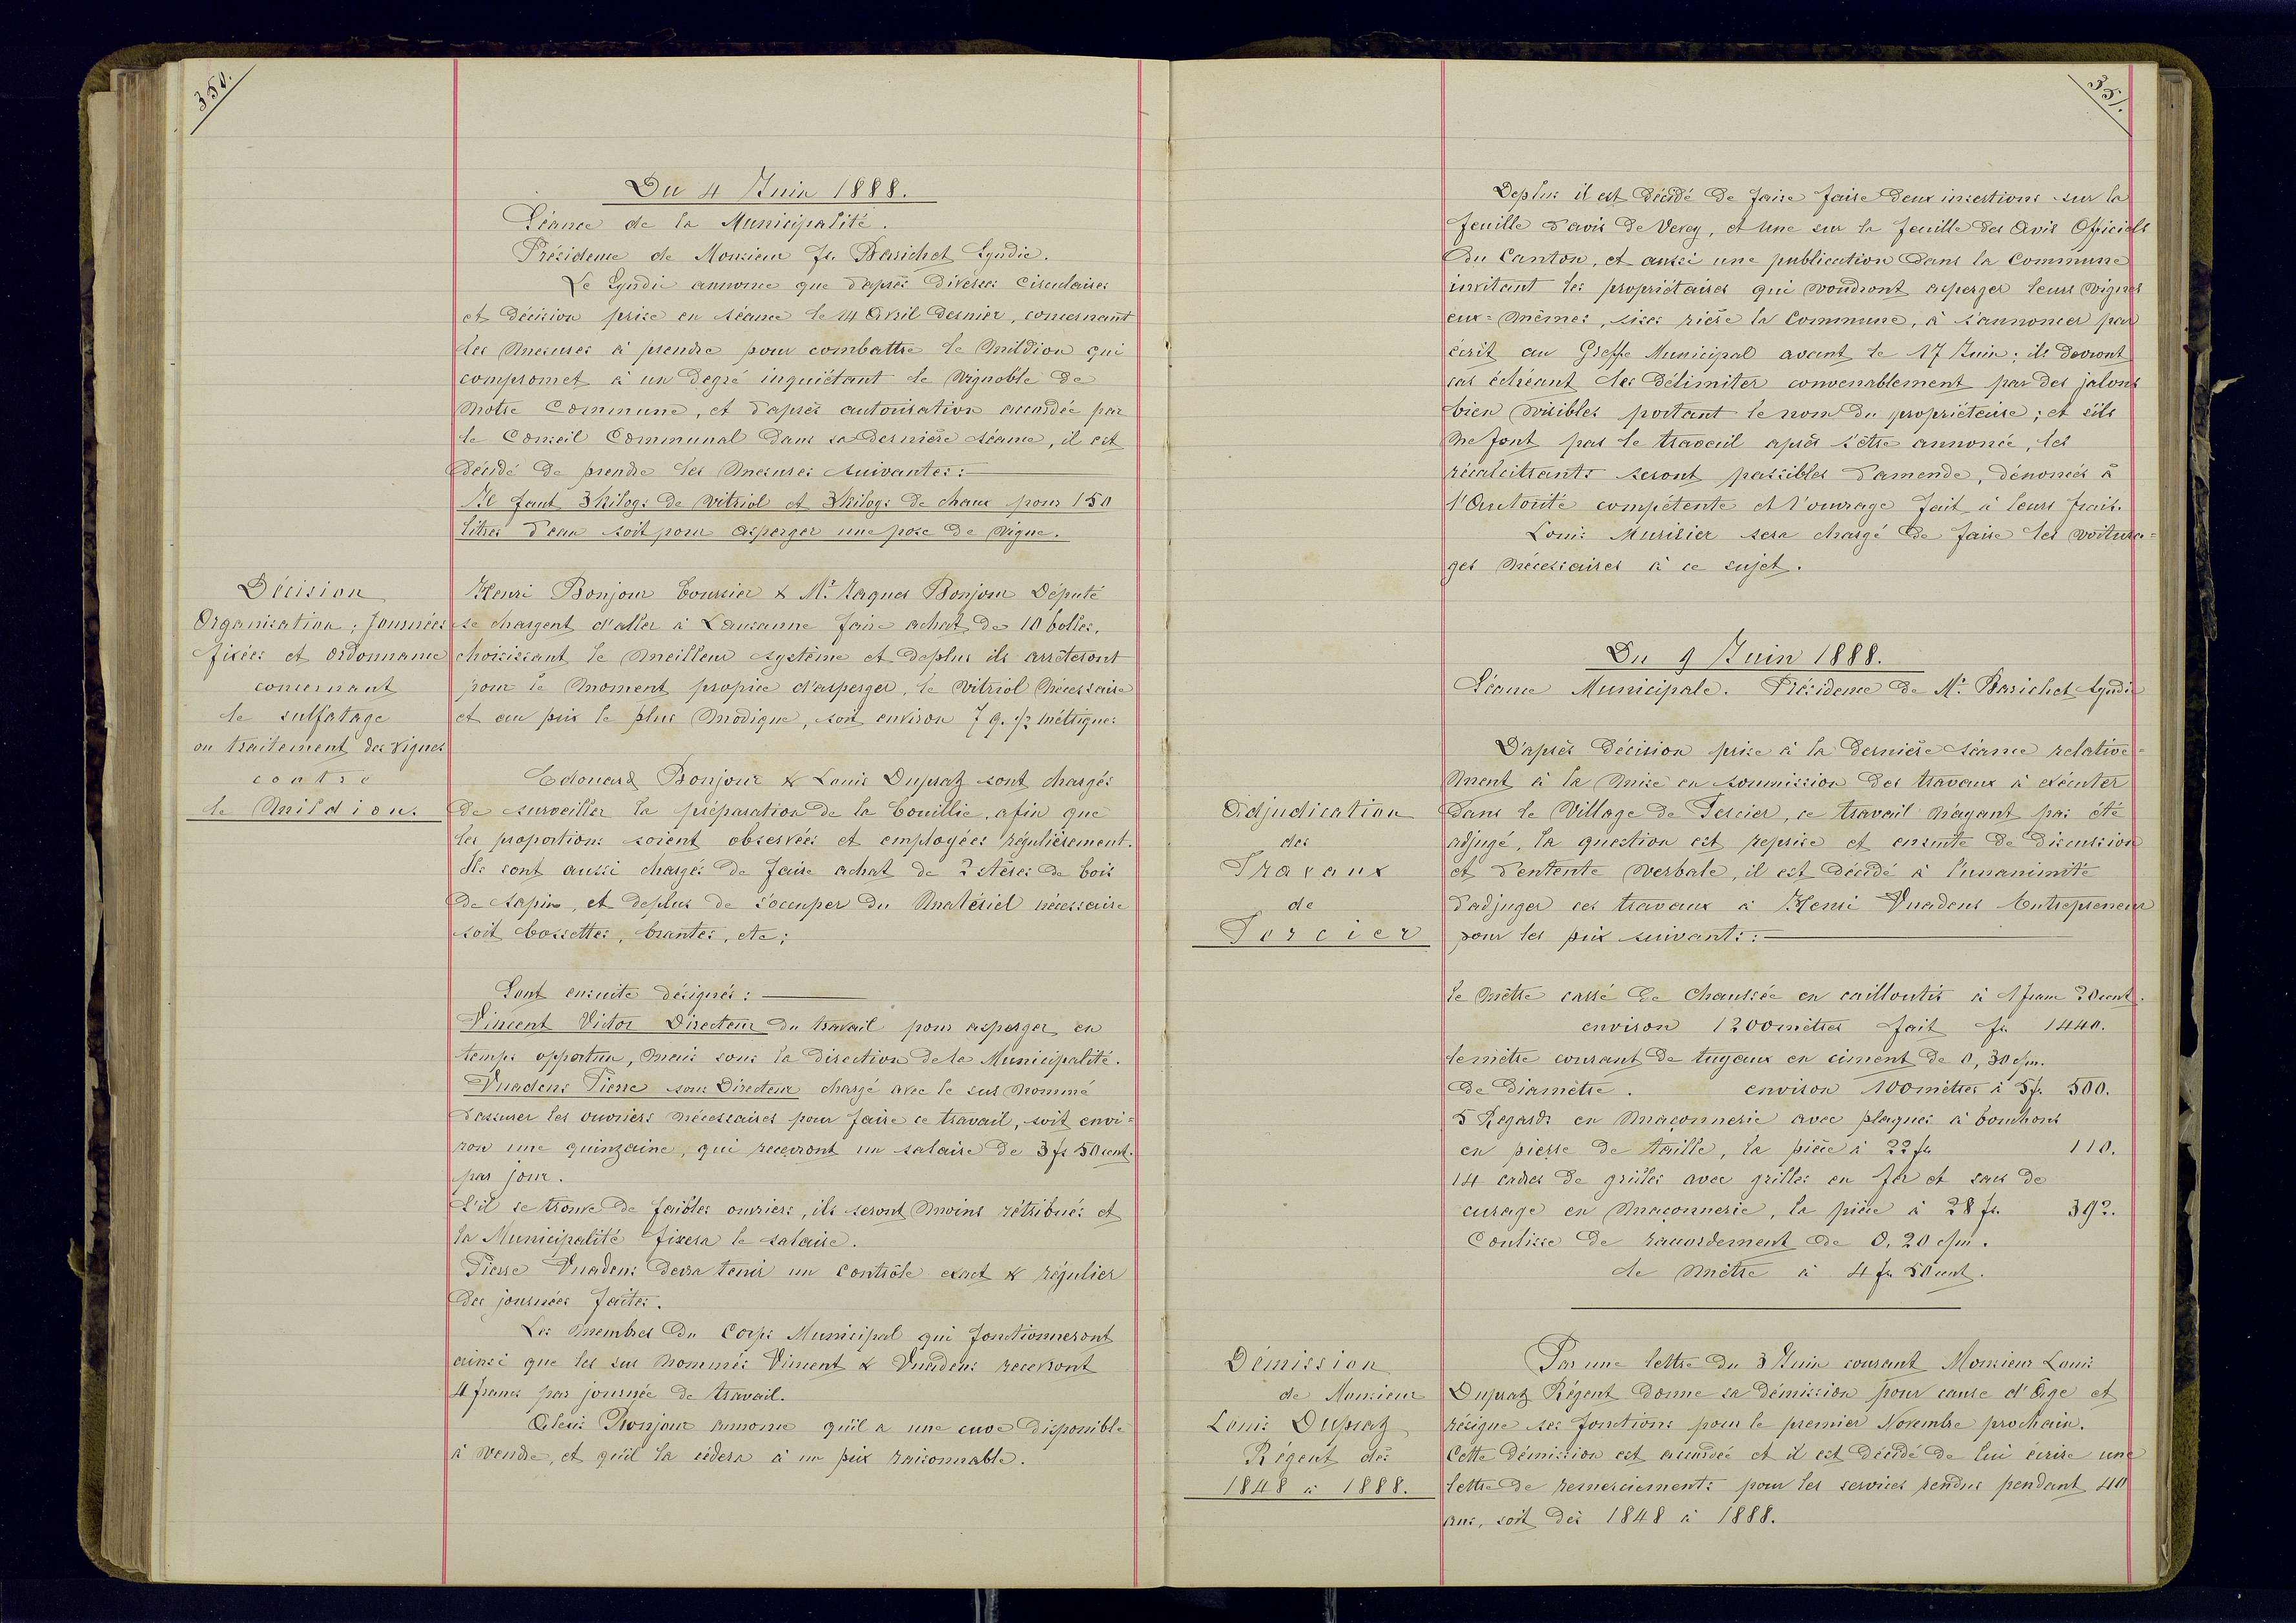 350.
Du 4 Juin 1888.
Séance de la Municipalité.
Présidence de Monsieur Fs. Barichet Syndic.
Le Syndic annonce que d'après diverses circulaires
et décision prise en séance le 14 Avril dernier, concernant
les mesures à prendre pour combattre le Mildiou qui
compromet à un degré inquiétant le Vignoble de
notre Commune, et d'après autorisation accordée par
le Conseil Communal dans sa dernière séance, il est
décidé de prendre les mesures suivantes :
Il faut 3 kilogs de vitriol et 3 kilogs de chaux pour 150
litres d'eau soit pour asperger une pose de vigne.
Décision
Organisation ; Journées
fixées et ordonnance
concernant
le sulfatage
ou traitement des vignes
contre
le Mildiou.
Henri Bonjour boursier & Mr. Jaques Bonjour Député
se chargent d'aller à Lausanne faire achat de 10 boilles,
choisissant le meilleur système et deplus ils arrêteront
pour le moment propice d'asperger, le vitriol nécessaire
et au prix le plus modique, soit environ 7 q. ½ métriques
Edouard Bonjour & Louis Dupraz sont chargés
de surveiller la préparation de la bouillie, afin que
les proportions soient observées et employées régulièrement.
Ils sont aussi chargés de faire achat de 2 stères de bois
de sapin, et deplus de s'occuper du Matériel nécessaire
soit bossettes, brantes, etc ;
Sont ensuite désignés :
Vincent Victor Directeur du travail pour asperger en
temps opportun, mais sous la direction de la Municipalité.
Vuadens Pierre sous Directeur chargé avec le sus nommé
d'assurer les ouvriers nécessaires pour faire ce travail, soit envi=
ron une quinzaine, qui recevront un salaire de 3 fs 50 cent.
par jour.
S'il se trouve de faibles ouvriers, ils seront moins rétribués et
la Municipalité fixera le salaire.
Pierre Vuadens devra tenir un contrôle exact & régulier
des journées faites.
Les membres du Corps Municipal qui fonctionneront
ainsi que les sus nommés Vincent & Vuadens recevront
4 francs par journée de travail.
Alexis Bonjour annonce qu'il a une cuve disponible
à vendre, et qu'il la cèdera à un prix raisonnable.
351.
Deplus il est décidé de faire faire deux insertions sur la
feuille d'avis de Vevey, et une sur la feuille des Avis Officiels
du Canton, et aussi une publication dans la Commune
invitant les propriétaires qui voudront asperger leurs vignes
eux=mêmes, sises rière la Commune, à s'annoncer par
écrit au Greffe Municipal avant le 17 Juin ; ils devront
cas échéant les délimiter convenablement par des jalons
bien visibles portant le nom du propriétaire ; et s'ils
ne font pas le travail après s'être annoncé, les
récalcitrants seront passibles d'amende, dénoncés à
l'Autorité compétente et l'ouvrage fait à leurs frais.
Louis Murisier sera chargé de faire les voitura=
ges nécessaires à ce sujet.
Du 9 Juin 1888.
Séance Municipale. Présidence de Mr. Barichet Syndic
D'après décision prise à la dernière séance relative=
ment à la mise en soumission des travaux à exécuter
dans le Village de Fercier, ce travail n'ayant pas été
adjugé, la question est reprise et ensuite de discussion
et d'entente verbale, il est décidé à l'unanimité
d'adjuger ces travaux à Henri Vuadens Entrepreneur
pour les prix suivants :
Adjudication
des
Travaux
de
Forcier
le mètre carré de chaussée en cailloutis à 1 franc 20 cent.
environ 1200 mètres fait fs 1440.
le mètre courant de tuyaux en ciment de 0,30 c/m.
de diamètre. environ 100 mètres à 5 f. 500.
5 Regards en maçonnerie avec plaques à bouchons
en pierre de taille, la pièce à 22 fs 110.
14 cadres de grilles avec grilles en fer et sacs de
curage en maçonnerie, la pièce à 28 fs. 392.
Coulisse de raccordement de 0,20 c/m.
le mètre à 4 fs 50 cent.
Démission
de Monsieur
Louis Dupraz
Régent dès
1848 à 1888.
Par une lettre du 3 Juin courant Monsieur Louis
Dupraz Régent donne sa démission pour cause d'âge et
résigne ses fonctions pour le premier Novembre prochain.
Cette démission est accordée et il est décidé de lui écrire une
lettre de remerciements pour les services rendus pendant 40
ans, soit dès 1848 à 1888.